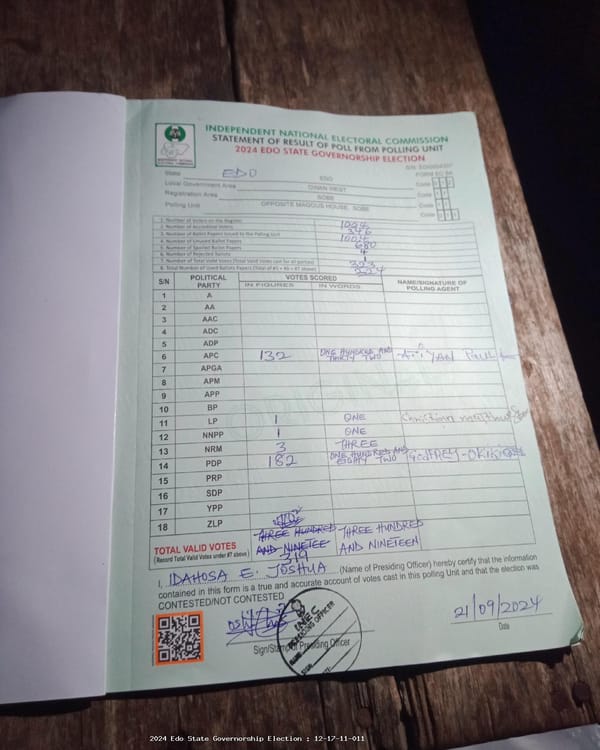 INDEPENDENT NATIONAL ELECTORAL COMMISSION
STATEMENT OF RESULT OF POLL FROM POLLING UNIT
2024 EDO STATE GOVERNORSHIP ELECTION
FORM EC 8A
State EDO EDO
Local Government Area OVIAN WEST Code
Registration Area SOBE Code
Polling Unit OPPOSITE MAGOUS HOUSE, SOBE Code
Code
1. Number of Voters on the Register 1004
2. Number of Accredited Voters 346
3. Number of Ballot Papers Issued to the Polling Unit 1004
4. Number of Unused Ballot Papers 680
5. Number of Spoiled Ballot Papers
6. Number of Rejected Ballots
7. Number of Total Valid Votes (Total Valid Votes cast for all parties)
8. Total Number of Used Ballot Papers (Total of #5 + #6 + #7 above)
S/N POLITICAL PARTY VOTES SCORED NAME/SIGNATURE OF POLLING AGENT
IN FIGURES IN WORDS
1 A
2 AA
3 AAC
4 ADC
5 ADP
6 APC 132 ONE HUNDRED AND THIRTY TWO
7 APGA
8 APM
9 APP
10 BP
11 LP 1 ONE
12 NNPP 1 ONE
13 NRM 3 THREE
14 PDP 182 ONE HUNDRED AND EIGHTY TWO GODFREY
15 PRP
16 SDP
17 YPP
18 ZLP
TOTAL VALID VOTES THREE HUNDRED THREE HUNDRED
(Record Total Valid Votes under #7 above) AND NINETEE AND NINETEEN
319
I, IDAHOSA E. JOSHUA (Name of Presiding Officer) hereby certify that the information
contained in this form is a true and accurate account of votes cast in this polling Unit and that the election was
CONTESTED/NOT CONTESTED
INEC
PRESIDING OFFICER
21/09/2024
Sign/Stamp of Presiding Officer Date
2024 Edo State Governorship Election : 12-17-11-011